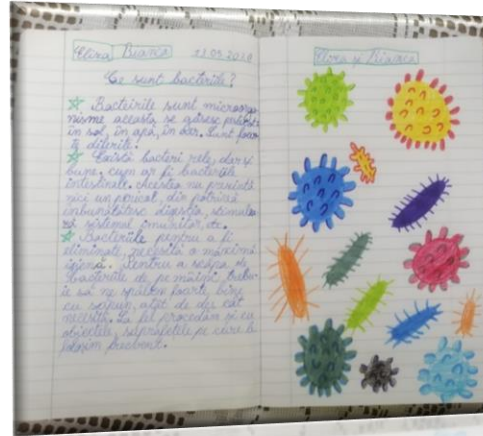 Elira Bianca 11.05.2020
Ce sunt bacteriile?
Bacteriile sunt microorga-
nisme aceasta se găsesc
în sol, în apă, în aer. Sunt foar-
te diferite.
Există bacterii rele, dar și
bune, cum ar fi bacteriile
intestinale. Acestea nu prezintă
nici un pericol, din potrivă
îmbunătățesc digestia, stimulea-
ză sistemul imunitar, etc.
Bacteriile pentru a fi
eliminate, necesită o maximă
igienă. Pentru a scăpa de
bacteriile de pe mâini, trebu-
ie să ne spălăm foarte bine
cu săpun, atât de des cât
necesită. La fel procedăm și cu
obiectele, suprafețele pe care le
folosim frecvent.
Elira și Bianca